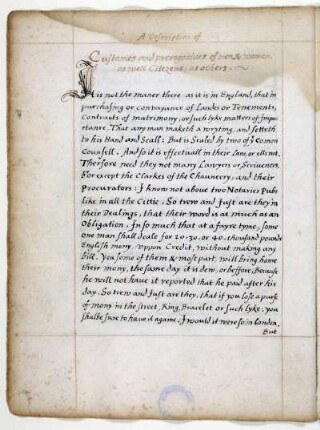 A Description of
Customes and prerogatives of men & women
as well Citizens, as others.
It is not the maner there as it is in England, that in
purchasing or conveyance of Landes or Tenements,
Contracts of matrimony, or such lyke matters of Impor-
tance, That any man maketh a wryting, and setteth
to his Hand and Seall; But is Sealed by two of ye Comon
Counsell. And so it is effectuall in their Lawe or ells not.
Therfore need they not many Lawyers or Scriveners.
For except the Clarkes of the Chauncery, and their
Procurators: I know not above two Notaries Pub-
like in all the Cittie. So trew and Just are they in
their Dealings, that their word is as much as an
Obligation. In so much that at a fayre tyme, some
one man shall deale for 20. 30. or 40. thousand pounds
English mony, uppon Credit, without making any
Bill. Yea some of them & most part, will bring home
their mony, the same day it is dew, or beffore, because
he will not have it reported that he paid after his
day. So trew and Just are they, that if you lose a purse
of mony in the street, Ring, Bracelet or such lyke: you
shalbe sure to have it agame. I would it were so in London.
But